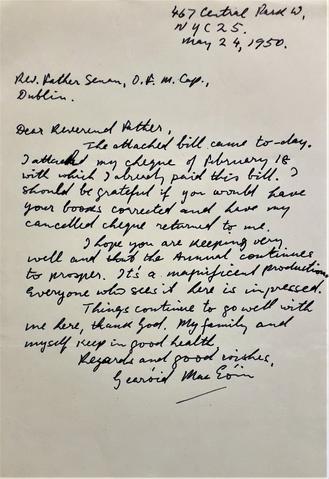 467 Central Park W,
NYC 25.
May 24, 1950.
Rev. Father Senan, O.F.M. Cap.,
Dublin.
Dear Reverend Father,
The attached bill came to-day.
I attached my cheque of February 18
with which I already paid this bill. I
should be grateful if you would have
your books corrected and have my
cancelled cheque returned to me.
I hope you are keeping very
well and that the Annual continues
to prosper. It's a magnificent production.
Everyone who sees it here is impressed.
Things continue to go well with
me here, thank God. My family and
myself keep in good health.
Regards and good wishes,
Gearóid Mac Eóin